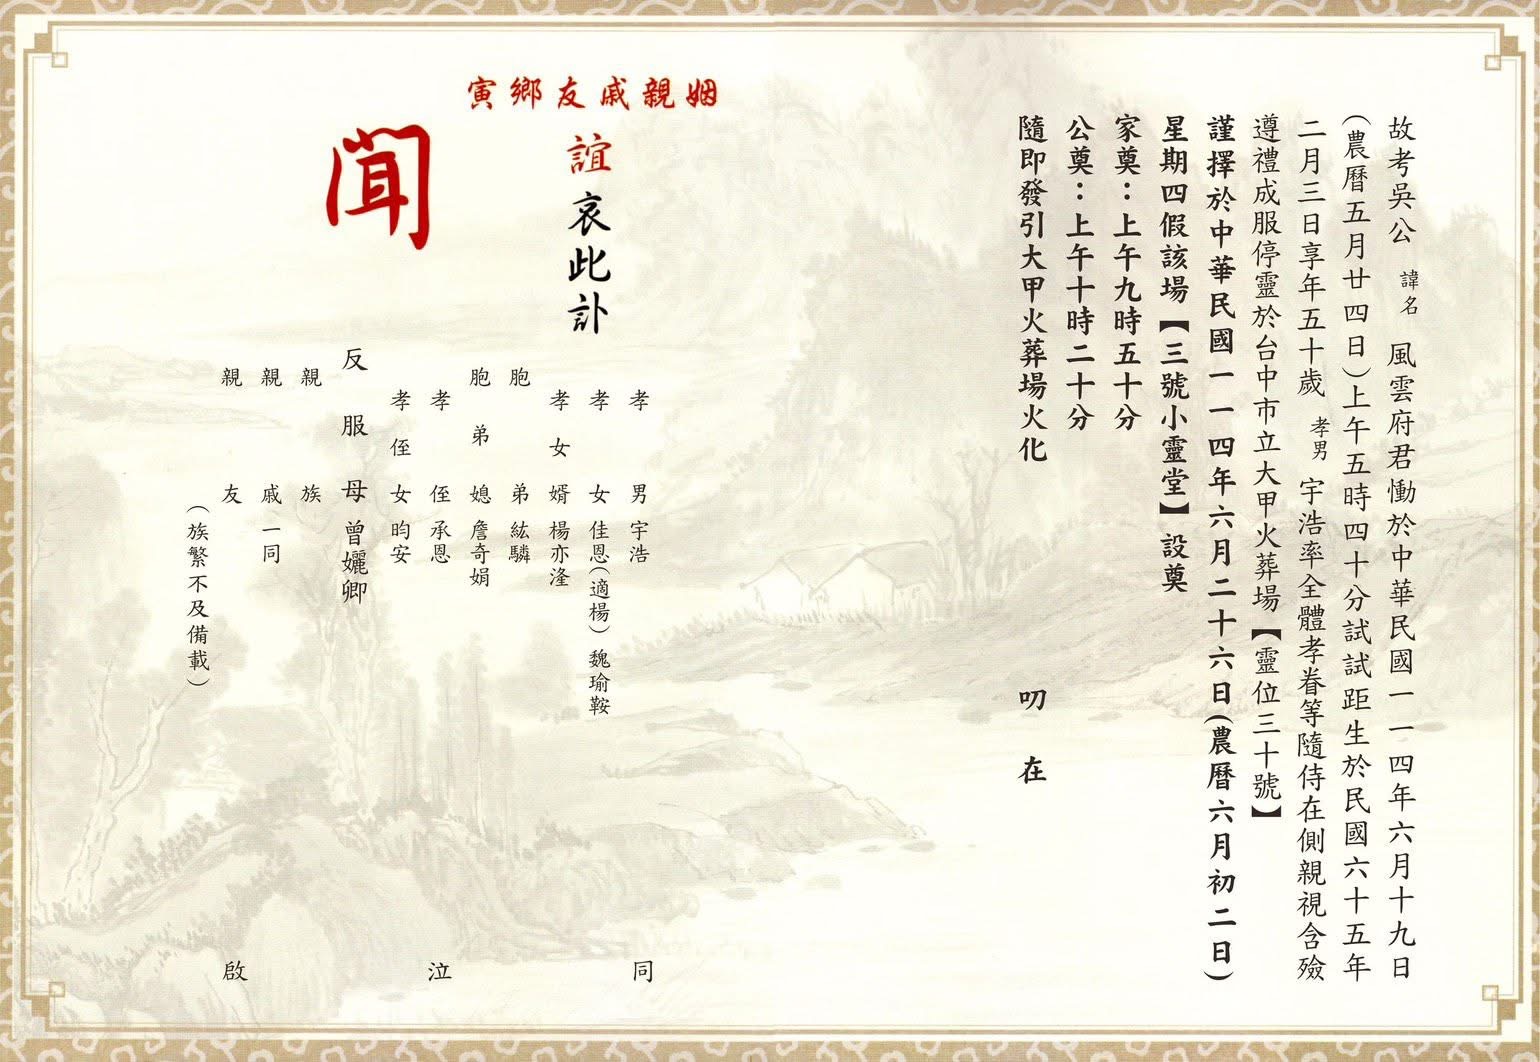 故考吳公 諱名 風雲府君慟於中華民國一一四年六月十九日
(農曆五月廿四日)上午五時四十分試試距生於民國六十五年
二月三日享年五十歲 孝男 宇浩率全體孝眷等隨侍在側親視含殮
遵禮成服停靈於台中市立大甲火葬場【靈位三十號】
謹擇於中華民國一一四年六月二十六日(農曆六月初二日)
星期四假該場【三號小靈堂】設奠
家奠：上午九時五十分
公奠：上午十時二十分
隨即發引大甲火葬場火化
叨 在
姻親戚友鄉寅
誼哀此訃
聞
孝男 宇浩
孝女 佳恩(適楊) 魏瑜鞍
孝女婿 楊亦漨
胞弟 紘驎
胞弟媳 詹奇娟
孝侄 承恩
孝侄女 昀安
反服母 曾孋卿
親族
親戚一同
親友
(族繁不及備載)
同 泣 啟